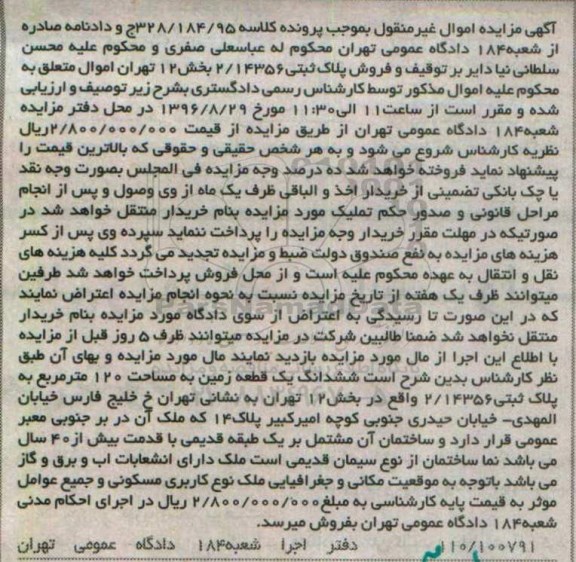 آگهی مزایده اموال غیرمنقول بموجب پرونده کلاسه ۳۲۸/۱۸۴/۹۵ج و دادنامه صادره
از شعبه۱۸۴ دادگاه عمومی تهران محکوم له عباسعلی صفری و محکوم علیه محسن
سلطانی نیا دایر بر توقیف و فروش پلاک ثبتی۲/۱۴۳۵۶ بخش۱۲ تهران اموال متعلق به
محکوم علیه اموال مذکور توسط کارشناس رسمی دادگستری بشرح زیر توصیف و ارزیابی
شده و مقرر است از ساعت۱۱ الی۱۱:۳۰ مورخ ۱۳۹۶/۸/۲۹ در محل دفتر مزایده
شعبه۱۸۴ دادگاه عمومی تهران از طریق مزایده از قیمت ۲/۸۰۰/۰۰۰/۰۰۰ریال
نظریه کارشناس شروع می شود و به هر شخص حقیقی و حقوقی که بالاترین قیمت را
پیشنهاد نماید فروخته خواهد شد ده درصد وجه مزایده فی المجلس بصورت وجه نقد
یا چک بانکی تضمینی از خریدار اخذ و الباقی ظرف یک ماه از وی وصول و پس از انجام
مراحل قانونی و صدور حکم تملیک مورد مزایده بنام خریدار منتقل خواهد شد در
صورتیکه در مهلت مقرر خریدار وجه مزایده را پرداخت ننماید سپرده وی پس از کسر
هزینه های مزایده به نفع صندوق دولت ضبط و مزایده تجدید می گردد کلیه هزینه های
نقل و انتقال به عهده محکوم علیه است و از محل فروش پرداخت خواهد شد طرفین
میتوانند ظرف یک هفته از تاریخ مزایده نسبت به نحوه انجام مزایده اعتراض نمایند
که در این صورت تا رسیدگی به اعتراض از سوی دادگاه مورد مزایده بنام خریدار
منتقل نخواهد شد ضمنا طالبین شرکت در مزایده میتوانند ظرف ۵ روز قبل از مزایده
با اطلاع این اجرا از مال مورد مزایده بازدید نمایند مال مورد مزایده و بهای آن طبق
نظر کارشناس بدین شرح است ششدانگ یک قطعه زمین به مساحت ۱۲۰ مترمربع به
پلاک ثبتی۲/۱۴۳۵۶ واقع در بخش۱۲ تهران به نشانی تهران خ خلیج فارس خیابان
المهدی– خیابان حیدری جنوبی کوچه امیرکبیر پلاک۱۴ که ملک آن در بر جنوبی معبر
عمومی قرار دارد و ساختمان آن مشتمل بر یک طبقه قدیمی با قدمت بیش از۴۰ سال
می باشد نما ساختمان از نوع سیمان قدیمی است ملک دارای انشعابات اب و برق و گاز
می باشد باتوجه به موقعیت مکانی و جغرافیایی ملک نوع کاربری مسکونی و جمیع عوامل
موثر به قیمت پایه کارشناسی به مبلغ۲/۸۰۰/۰۰۰/۰۰۰ ریال در اجرای احکام مدنی
شعبه۱۸۴ دادگاه عمومی تهران بفروش میرسد.
۱۱۰/۱۰۰۷۹۱ دفتر اجرا شعبه۱۸۴ دادگاه عمومی تهران